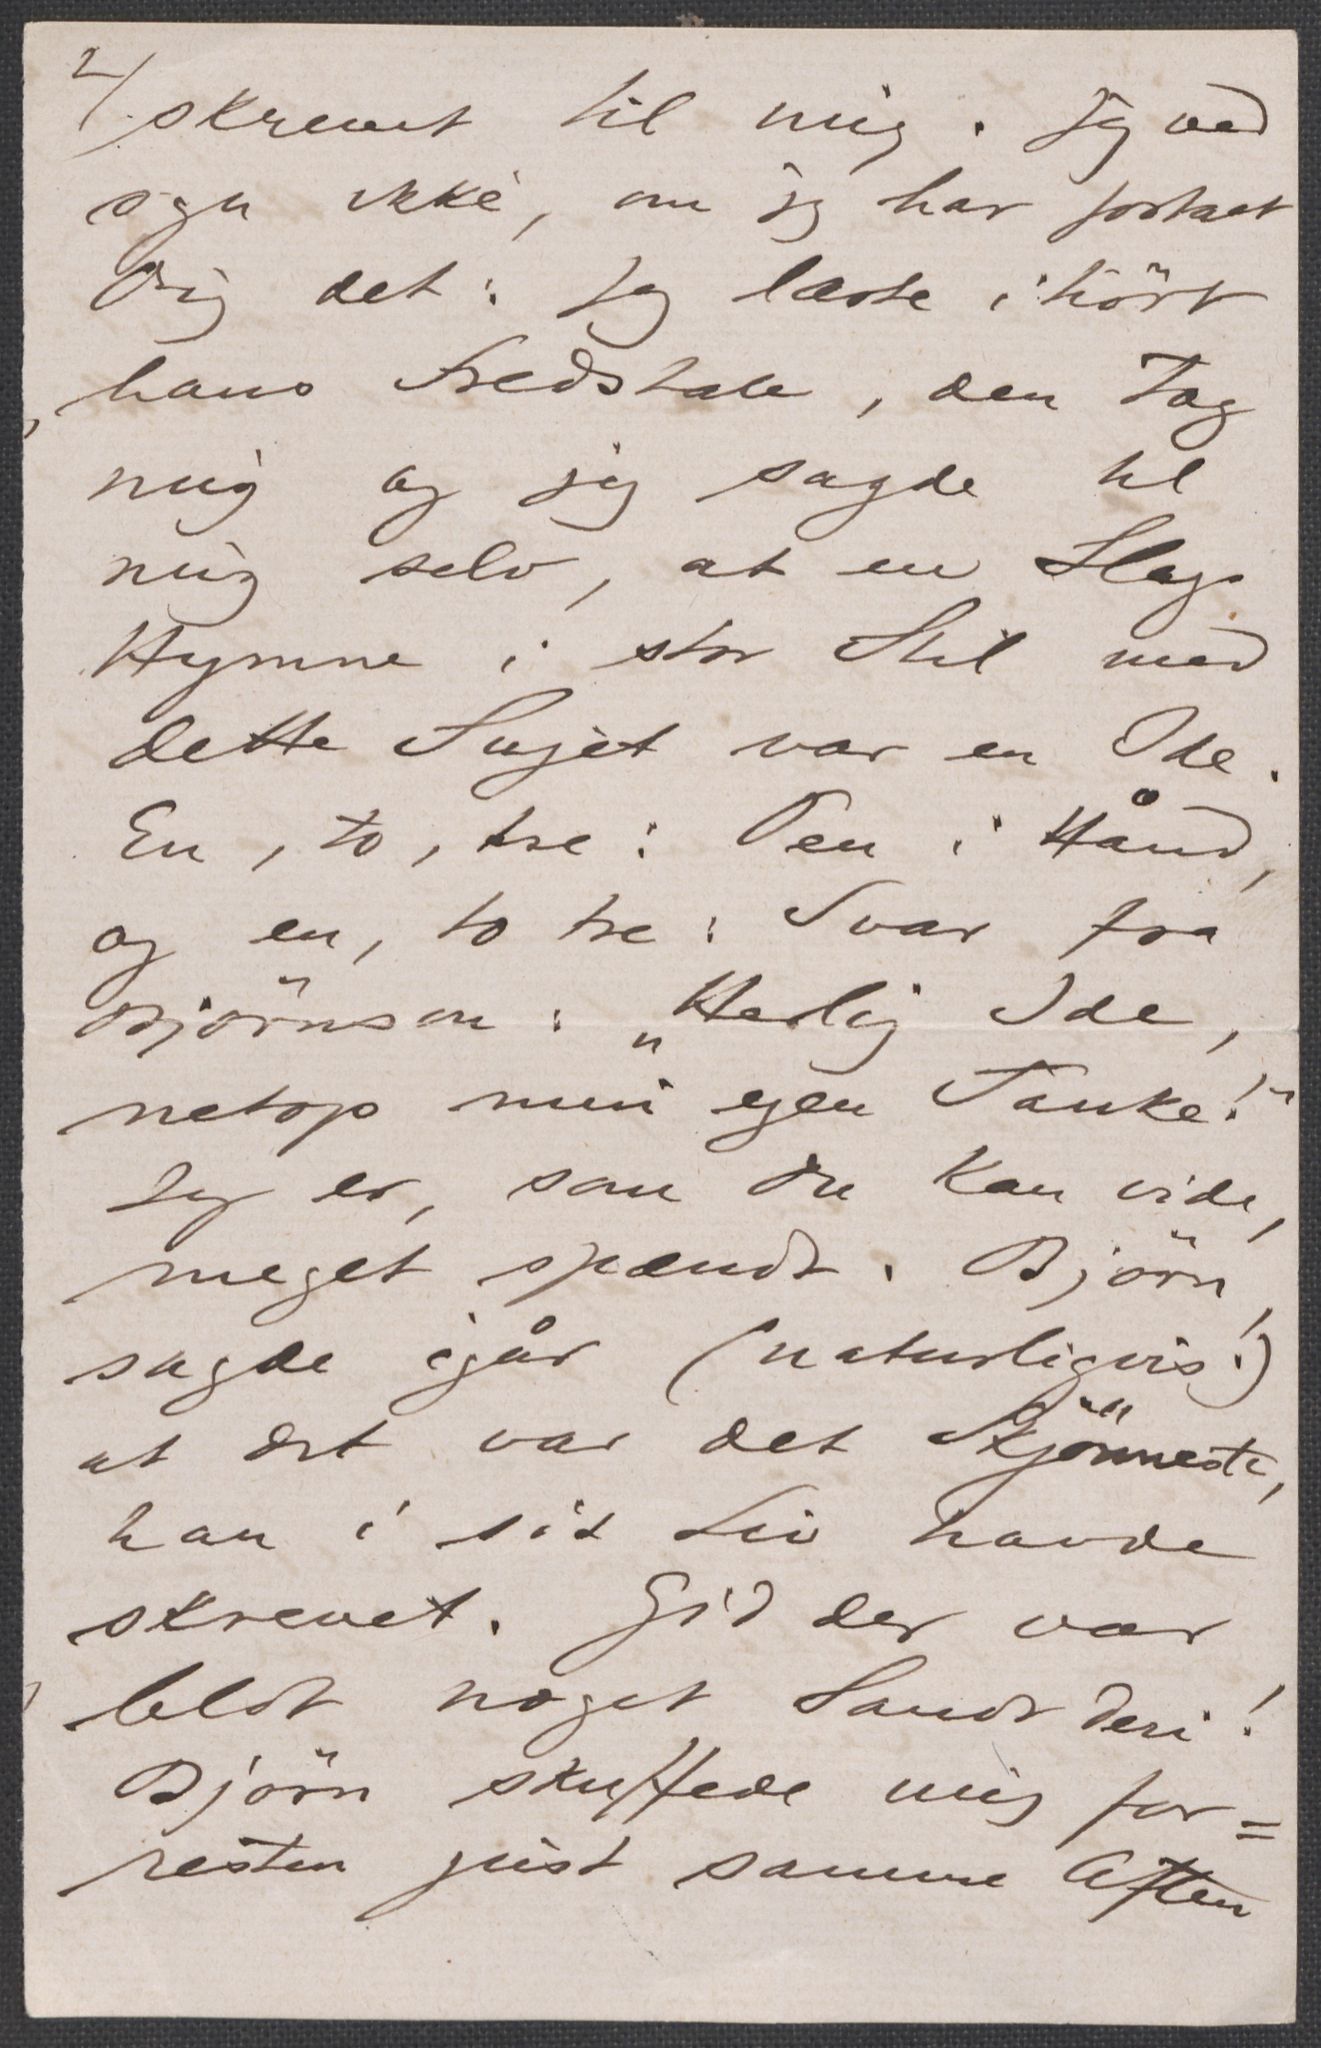 2/
skrevet til mig. Jeg ved
sgu ikke, om jeg har fortalt
Dig det: Jeg læste i høst
hans Fredstale, den tog
mig og jeg sagde til
mig selv, at en Slags
Hymne i stor Stil med
dette Sujet var en Ide.
En, to, tre: Pen i Hånd,
og en, to tre: Svar fra
Björnson: „Herlig Ide,
netop min egen Tanke!"
Jeg er, som Du kan vide,
meget spændt. Björn
sagde igår (naturligvis!)
at det var det Skjönneste,
han i sit Liv havde
skrevet. Gid der var
blot noget Sandt deri!
Björn skuffede mig for=
resten just samme Aften